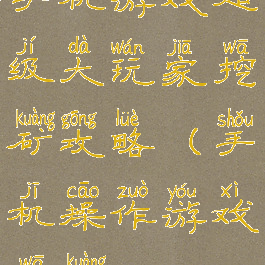 机游戏
jí dà wán jiā wā
级大玩家挖
kuàng gōng lüè shǒu
矿攻略（手
jī cāo zuò yóu xì
机操作游戏
wā kuàng